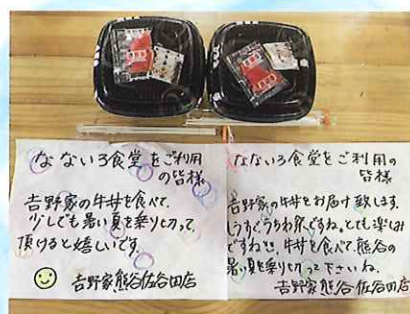 なないろ食堂をご利用
の皆様
吉野家の牛丼を食べて、
少しでも暑い夏を乗り切って
頂けると嬉しいです。
吉野家熊谷佐谷田店
なないろ食堂をご利用の
皆様
吉野家の牛丼をお届け致します。
もうすぐうちわ祭ですね。とても楽しみ
ですね!!、牛丼を食べて、熊谷の
暑い夏を乗り切って下さいね。
吉野家熊谷佐谷田店